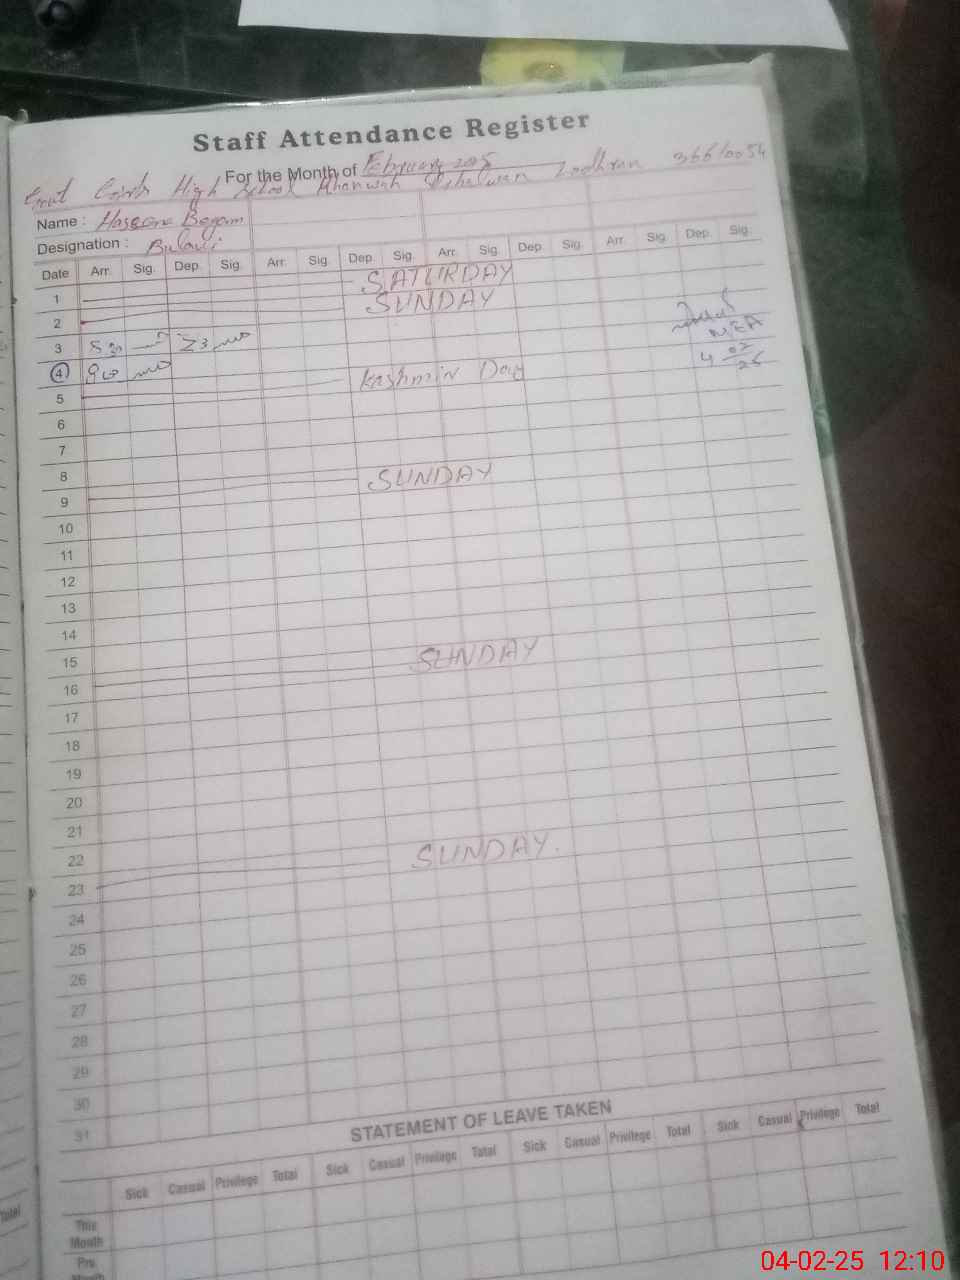 Staff Attendance Register
For the Month of February 2025
Govt Girls High School Khanwah Lodhran 36610054
Name : Haseena Begam
Designation :
Date Arr. Sig. Dep. Sig. Arr. Sig. Dep. Sig. Arr. Sig. Dep. Sig. Arr. Sig. Dep. Sig.
1 SATURDAY
2 SUNDAY
3
4
MEA
4 02 25
5 Kashmir Day
6
7
8
9 SUNDAY
10
11
12
13
14
15
16 SUNDAY
17
18
19
20
21
22
23 SUNDAY.
24
25
26
27
28
29
30
31
STATEMENT OF LEAVE TAKEN
Sick Casual Privilege Total Sick Casual Privilege Total Sick Casual Privilege Total Sick Casual Privilege Total
This Month
Pre. Month
Total
04-02-25 12:10